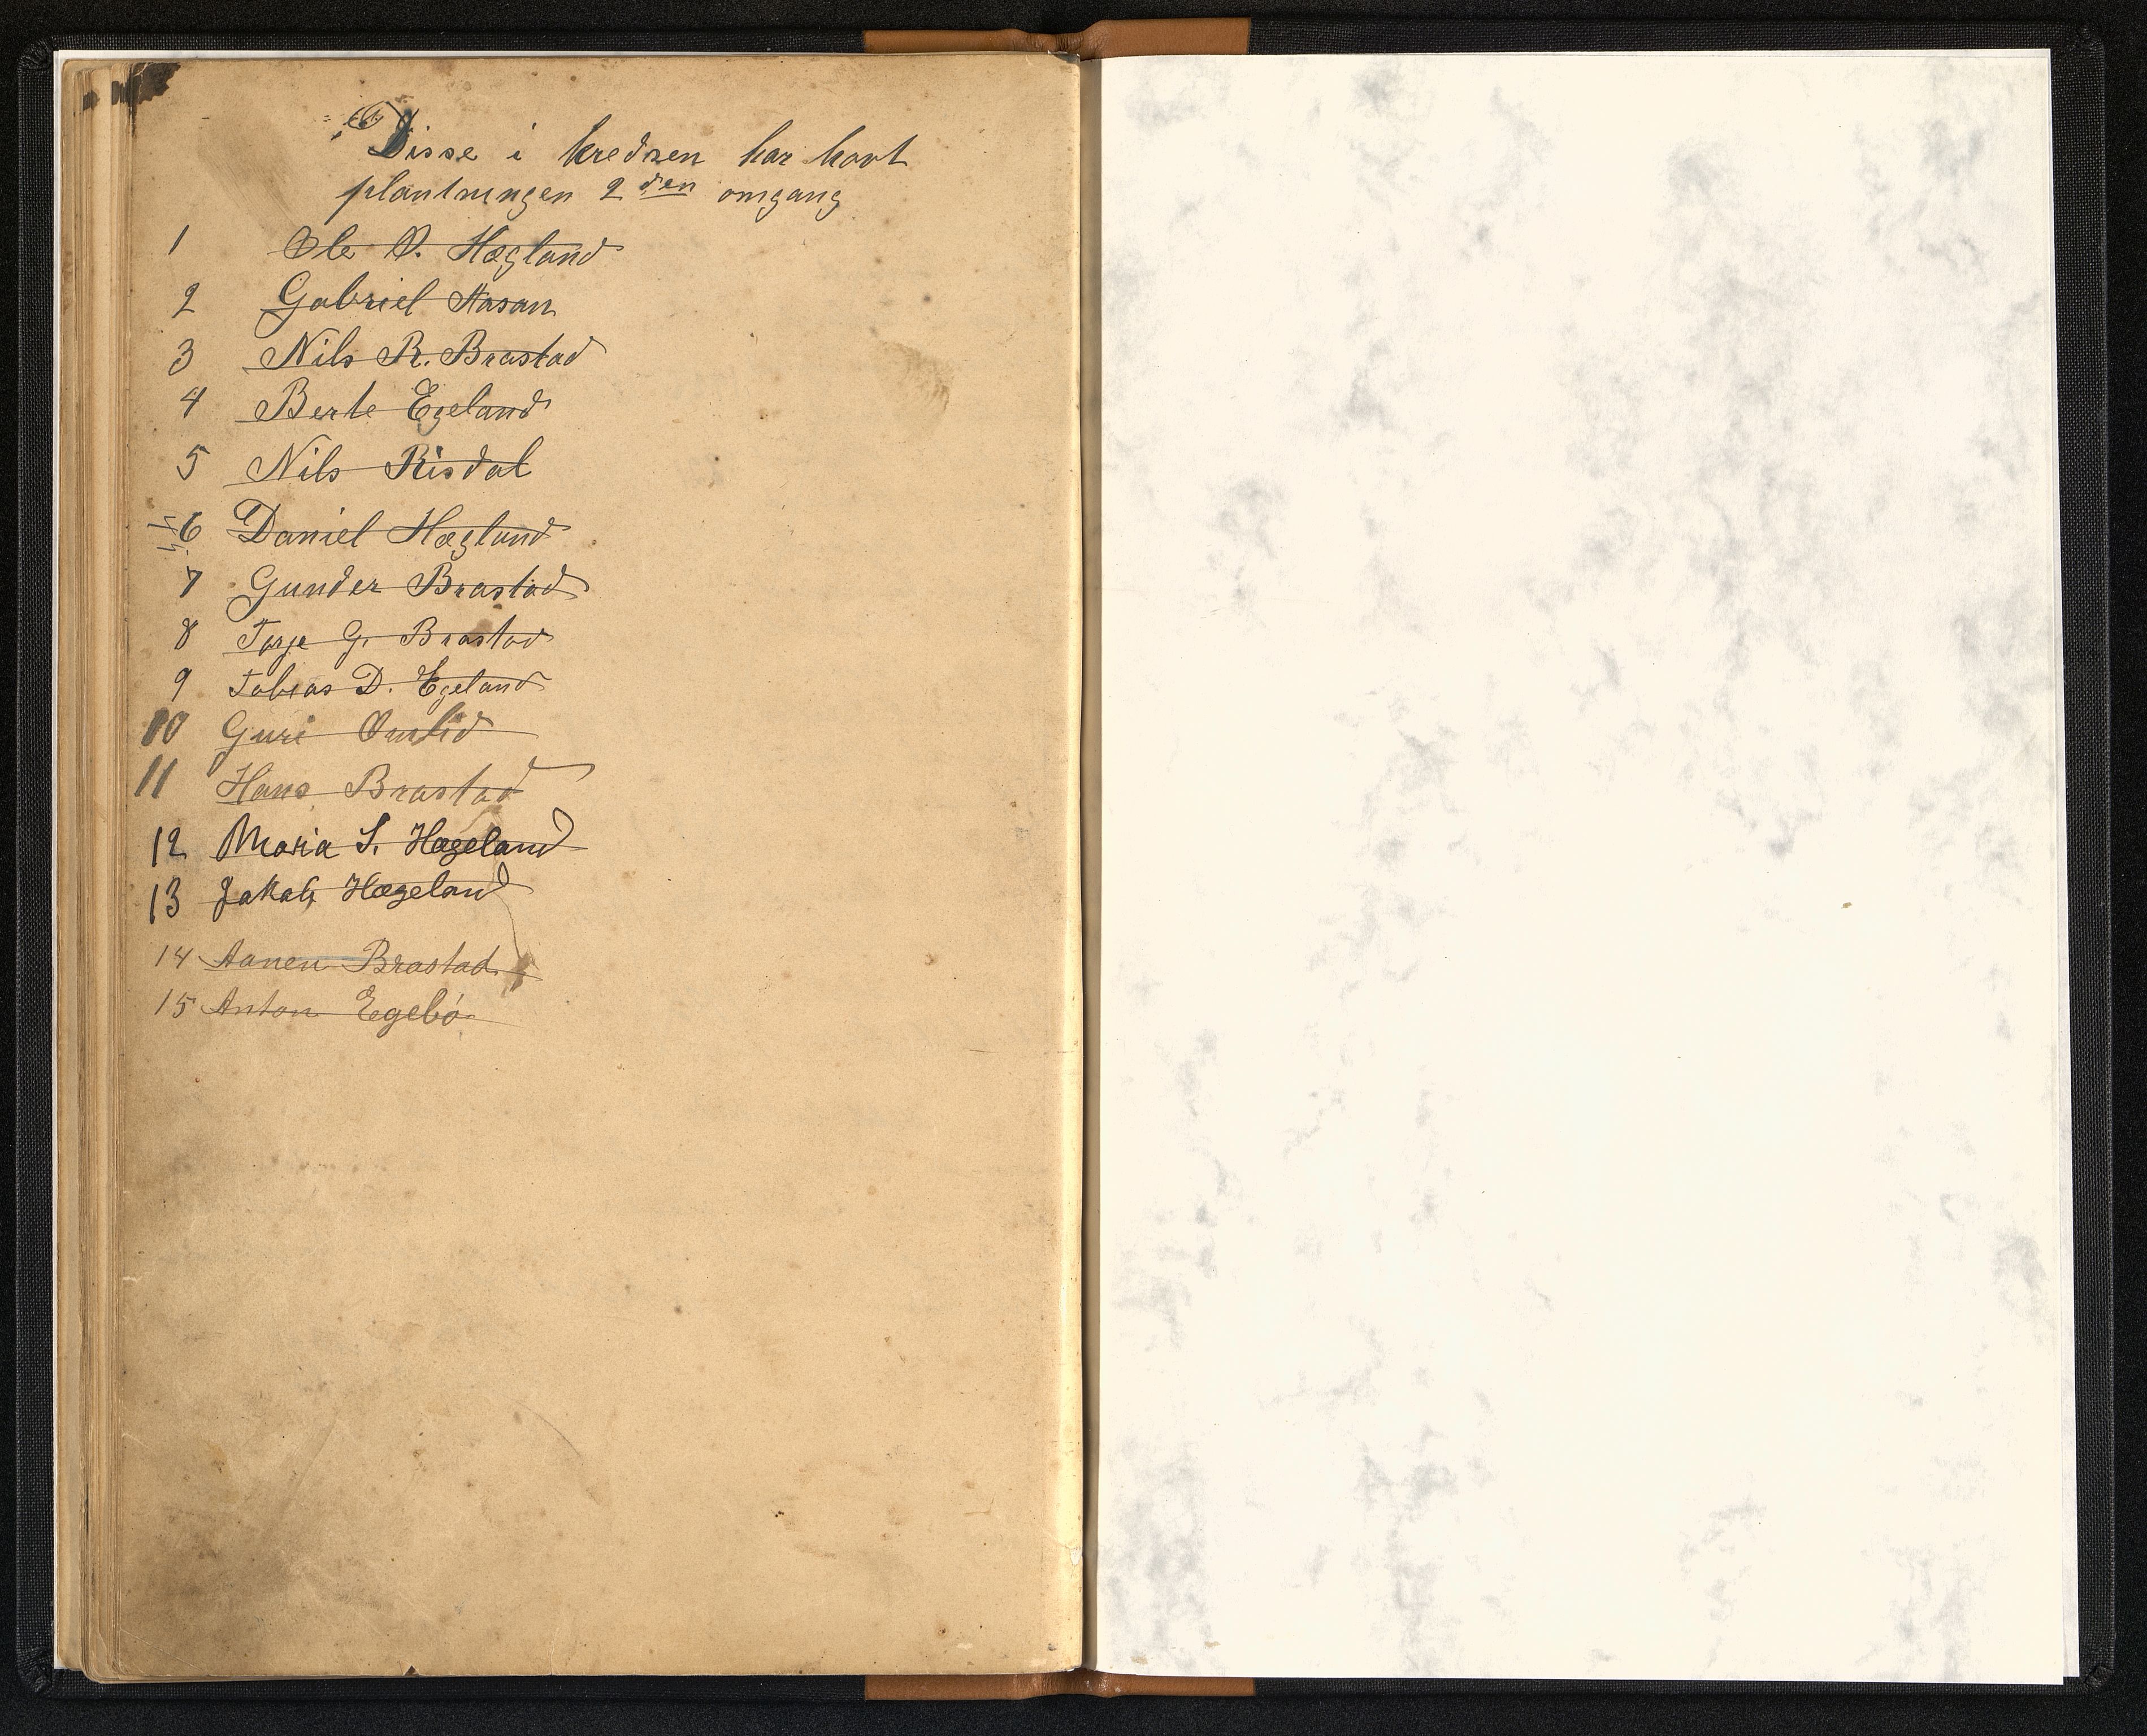 Disse i kredsen har havt
plantningen 2den omgang
1 Ole O. Hægland
2 Gabriel Aasan
3 Nils R. Brastad
4 Berte Egeland
5 Nils Risdal
6 Daniel Hægland
7 Gunder Brastad
8 Tarje G. Brastad
9 Tobias D. Egeland
10 Guri Omlid
11 Hans Brastad
12 Maria S. Hægeland
13 Jakob Hægeland
14 Aanen Brastad
15 Anton Egebö